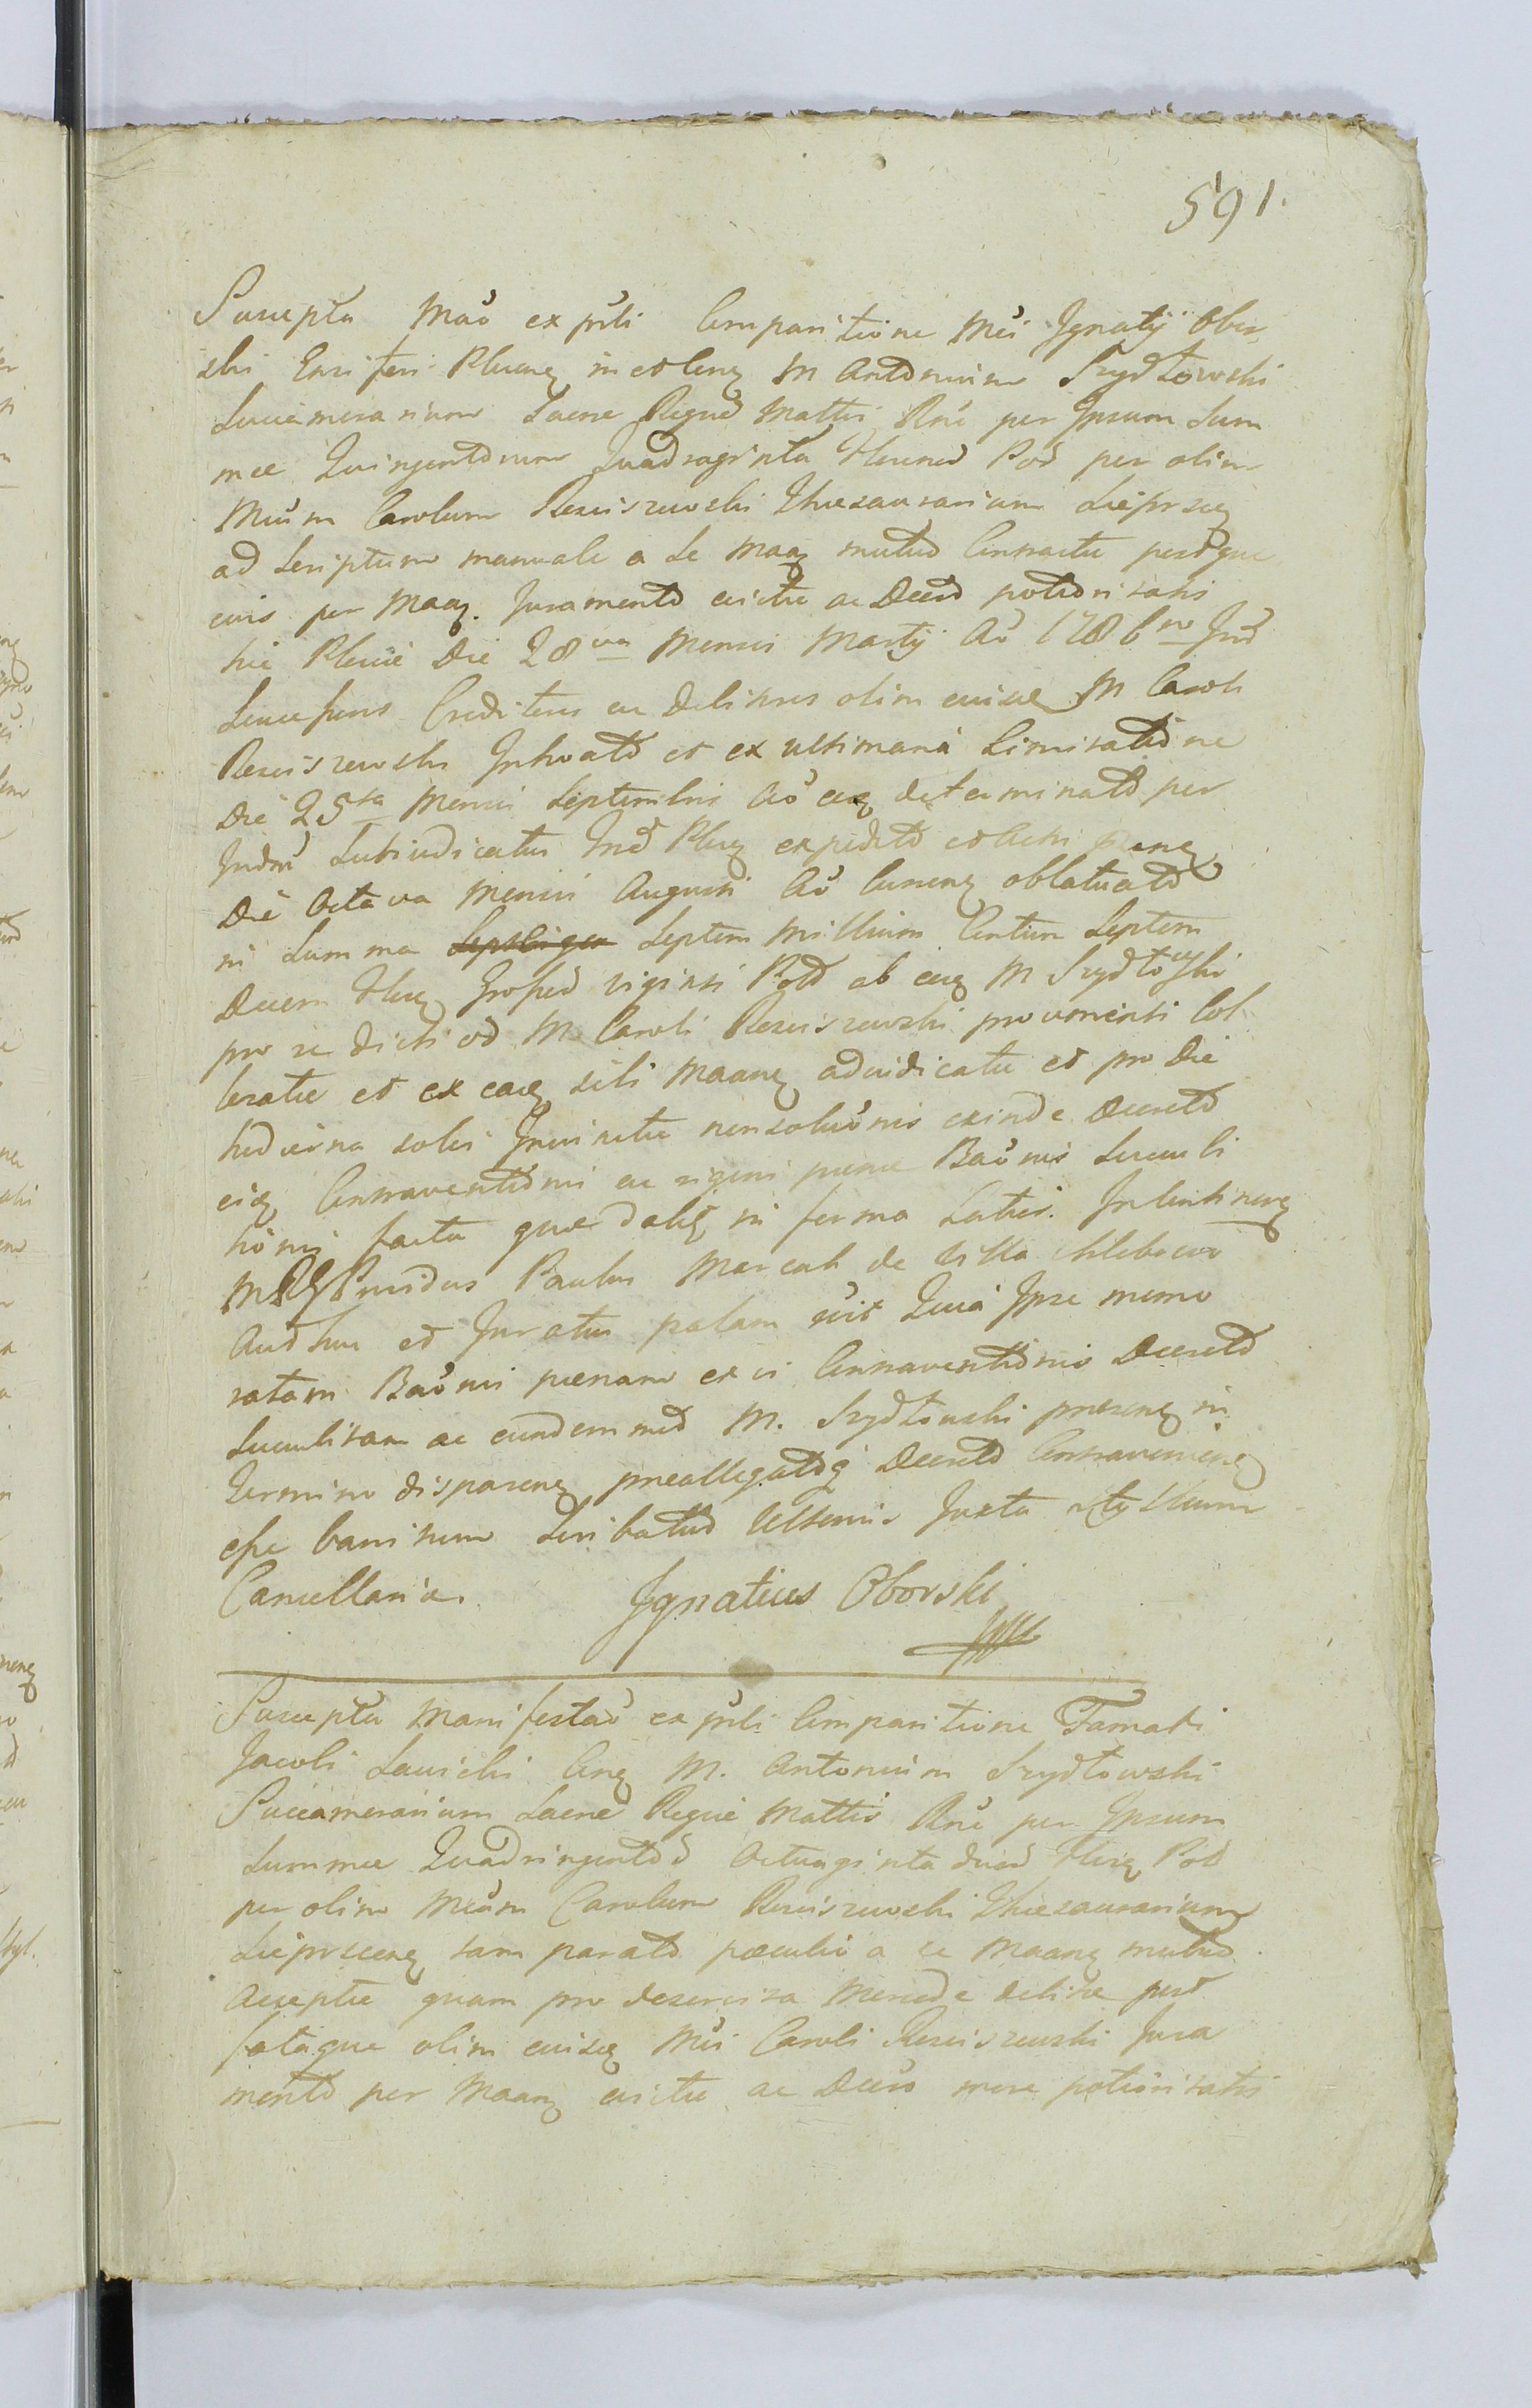 591.
Suscepta Mão ex prŭli Comparitione Mci Ignatij Obor
ski Ensiferi Plucen in et Cenq M Antonium Szydłowski
Succamerarium Sacrae Regiae Mattis Rnŭ per Ipsum Sum
mae Quingentorum Quadraginta Pol per olim
Mcum Carolum Resciszewski Thesaurarium
ad Scriptum manuale a se Maaq mutuo Contractae postque
eius per Maaq. Juramento evictae ac Decto potioritatis
hic Plciae Die 28va Mensis Martij Aŏ 1786to Jud
Successores Creditores ac debitores olim eiusdem M Caroli
Resciszewski Inchoato et ex ultimaria Limitatione
Die 25ta Mensis Septembris Aŏ eoq determinato per
Judm Subiudicatus Jud Plcq expedito et Actis
Die Octava Mensis Augusti Aŏ Currenq oblatuato
in Summa Septem Millium Centum Septem
Decem Flnq Grossed viginti Pol ab eoq M Szydłowski
pro re dicti od M. Caroli Resciszewski provenienti Col
locatae et ex eaq sibi Maanq adiudicatae et pro Die
hodierna solvi Iniunctae nonsolutionis exinde Decreto
eiq Contraventionis ac vigore poenae Bãonis Succubi
tionis facta quae dalis in forma Latius. In Continenq
M Providus Paulus Marcak de Villa Chlebowo
Auditus et Juratus palam rcit Quia Ipse memo
ratam Bãonis poenam ex vi Contraventionis Decreto
Succubitam ac eundemmet M. Szydłowski praesenq in
Termino disparenq praeallegatoq Decreto Contravenienq
esse banitum Scribatus Ulterius Juxta styllum
Cancellariae. Ignatius Oborski
Suscepta Manifestaõ ex prŭli Comparitione Famati
Jacobi Sawicki Cinq M. Antonium Szydłowski
Succamerarium Sacrae Regiae Mattis Rnŭ per Ipsum
Summae Quadringentod Octuaginta duod Flnq Pol
per olim Mcum Carolum Resciszewski Thesaurarium
tam parato peculio a se Maanq mutuo
Acceptae quam pro deservita Mercede debitae post
fataque olim eiusq Mci Caroli Resciszewski Jura
mento per Maanq evictae ac Decto more potioritatis